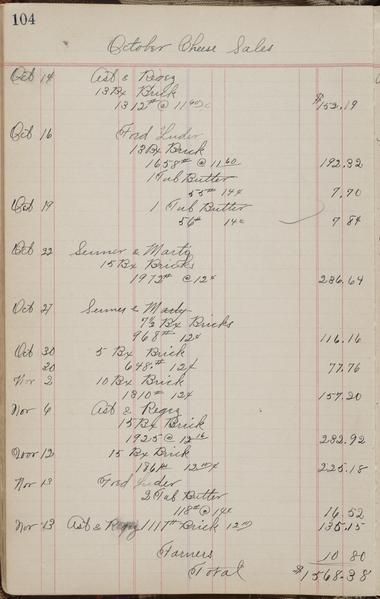 104
October Cheese Sales
Oct 14 Ast &
13 Bx Brick
1312# @ 11 60 $152.19
Oct 16 Fred Luder
13 Bx Brick
1658# @ 11 60 192.32
1 Tub Butter
55# 14¢ 7.70
Oct 19 1 Tub Butter
56# 14¢ 7 84
Oct 22 & Marty
15 Bx Bricks
1972# @ 12¢ 236.64
Oct 27 & Marty
7½ Bx Bricks
968# 12¢ 116.16
Oct 30 5 Bx Brick
30 648.# 12¢ 77.76
Nov 2 10 Bx Brick
1310# 12¢ 157.20
Nov 6 Ast &
15 Bx Brick
1925 @ 232.92
Nov 12 15 Bx Brick
225.18
Nov 13 Fred Luder
2 Tub Butter
118# @ 14¢ 16.52
Nov 13 Ast & 1117# Brick 135.15
Farmers 10 80
Total $1568.38